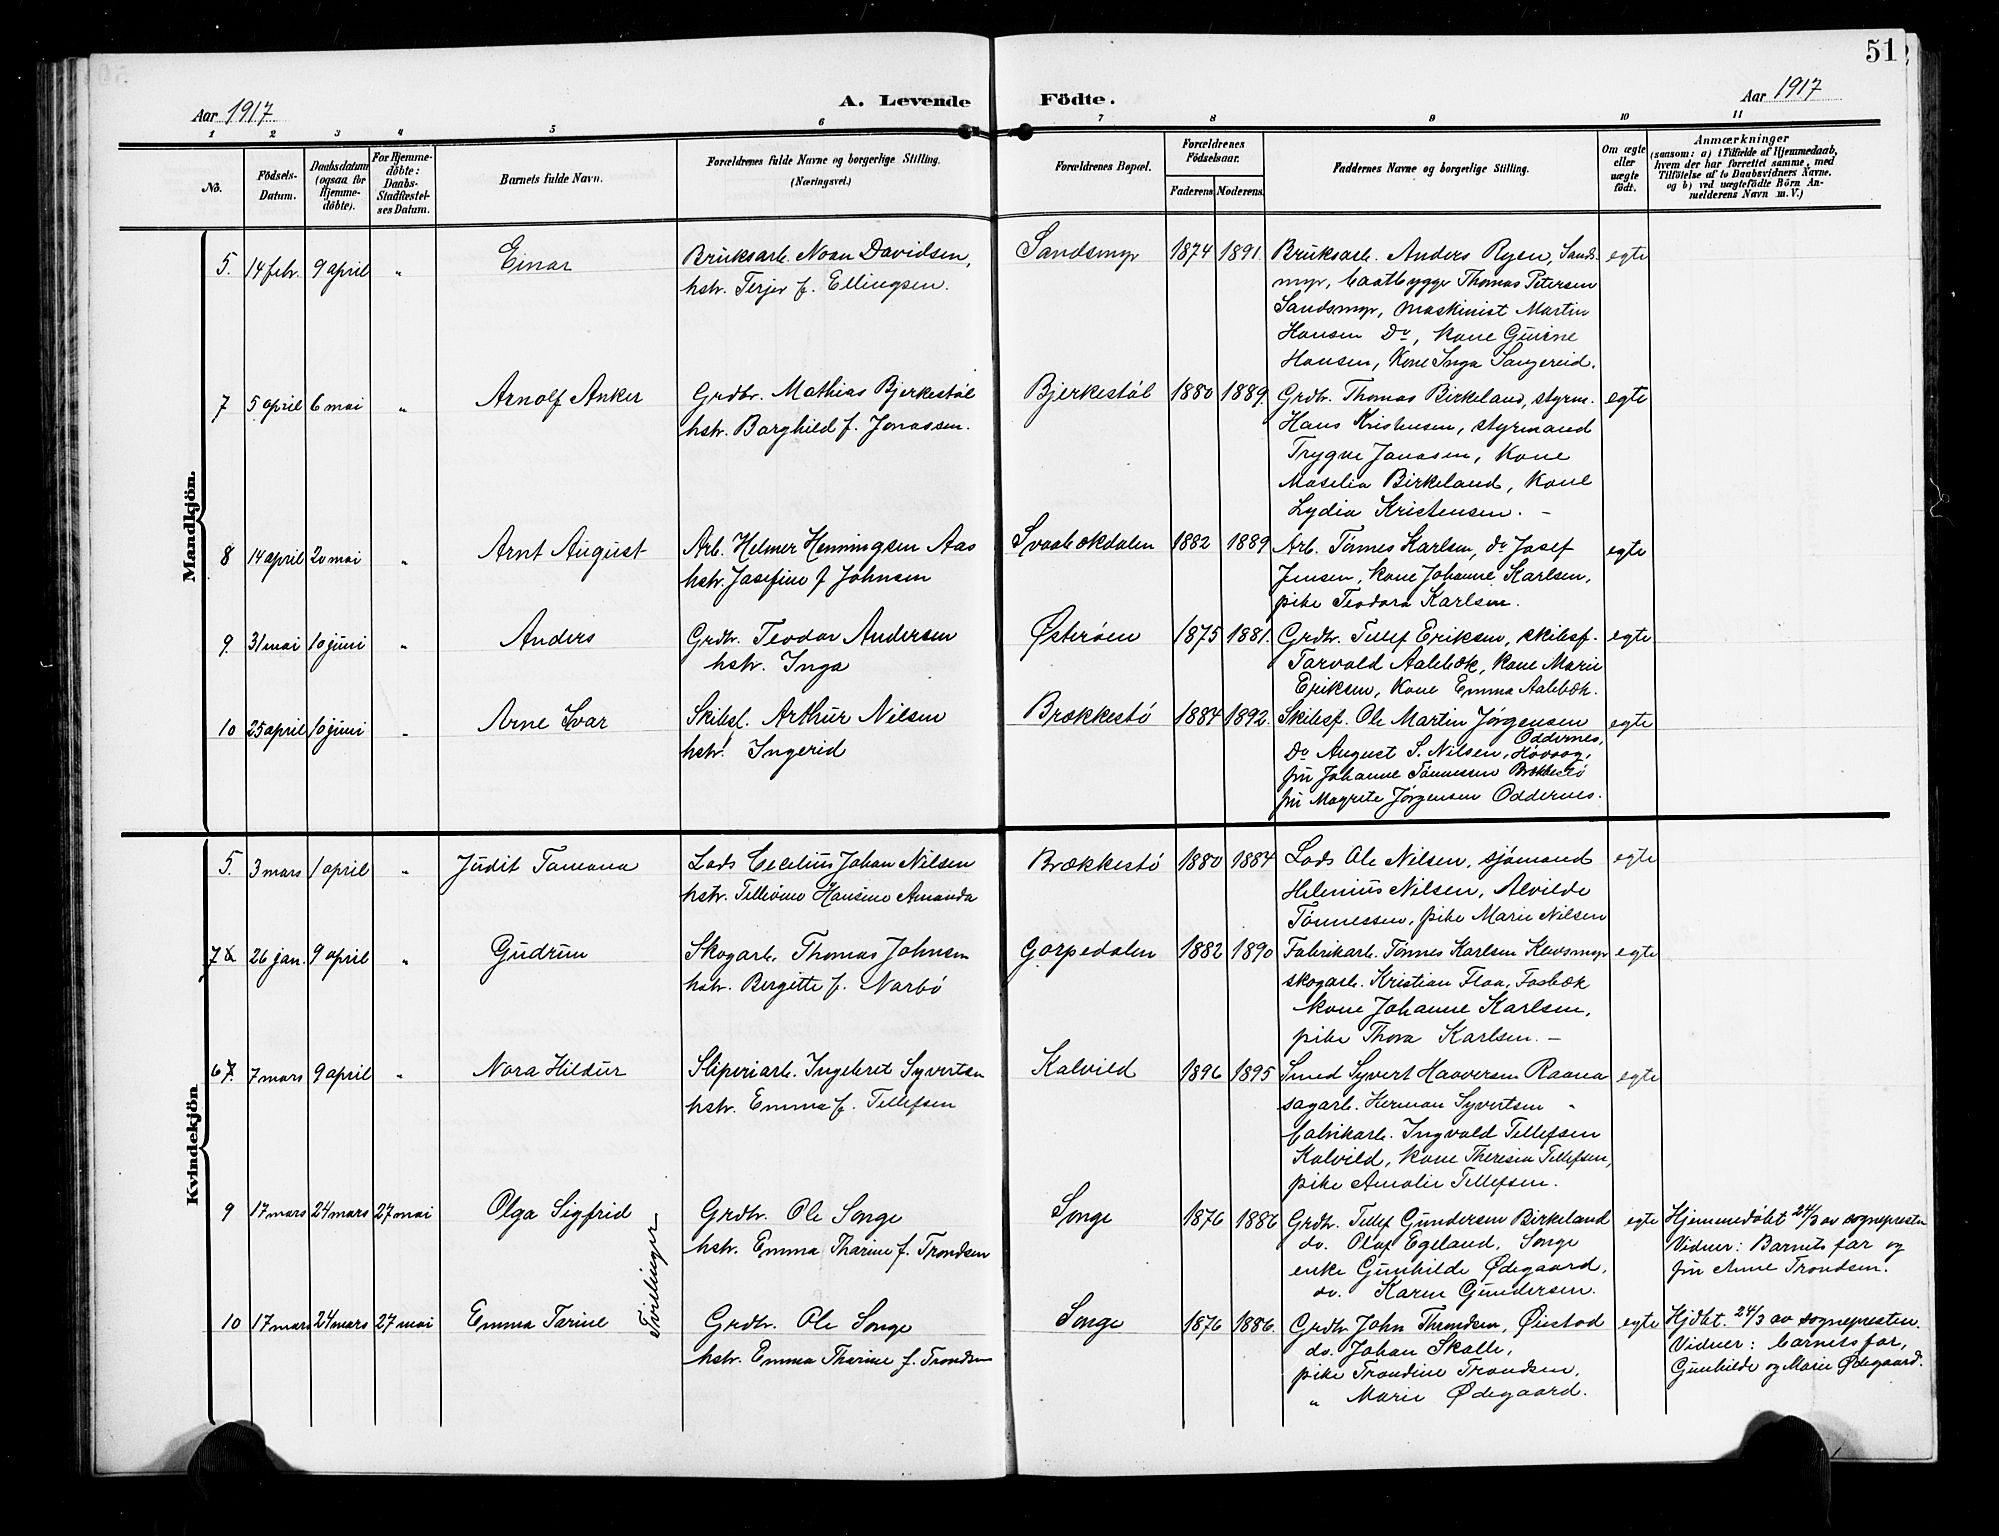 51
Aar 1917
A. Levende Födte.
Aar 1917
1 2 3 4 5 6 7 8 9 10 11
No.
Födsels-
Datum.
Daabsdatum
(ogsaa for
Hjemme-
döbte).
For Hjemme-
döbte:
Daabs-
Stadfæstel-
ses Datum.
Barnets fulde Navn.
Forældrenes fulde Navne og borgerlige Stilling.
(Næringsvei.)
Forældrenes Bopæl.
Forældrenes
Födselsaar.
Faderens Moderens.
Faddernes Navne og borgerlige Stilling.
Om ægte
eller
uægte
födt.
Anmærkninger
(saasom: a) i Tilfælde af Hjemmedaab,
hvem der har forrettet samme, med
Tilföielse af to Daabsvidners Navne,
og b) ved uægtefödte Börn An-
melderens Navn m. V.)
Mandkjön.
5. 14 febr. 9 april " Einar Bruksarb. Noan Davidsen, Sandsmyr 1874 1891. Bruksarb. Anders Ryen, Sands- egte
hstr. Terjer f. Ellingsen. myr, baatbygger Thomas Petersen
Sandsmyr, maskinist Martin
Hansen Do, kone Guirne
Hansen, kone Inga Sangereid.
7 5 april 6 mai " Arnolf Anker Grdbr. Mathias Bjerkestøl Bjerkestøl 1880 1889. Grdbr. Thomas Birkeland, styrm. egte
hstr. Borghild f. Jonassen. Hans Kristensen, styrmand
Trygve Jonasen, kone
Maselia Birkeland, kone
Lydia Kristensen. –
8 14 april 20 mai " Arnt August Arb. Helmer Henningsen Aas Svaabækdalen 1882 1889 Arb. Tønnes Karlsen, do Josef egte
hstr. Josefine f Johnsen Jensen, kone Johanne Karlsen,
pike Teodora Karlsen.
9. 31 mai 10 juni " Anders Grdbr. Teodor Andersen Østerøen 1875 1881. Grdbr. Tellef Eriksen, skibsf. egte
hstr. Inga Torvald Aalebæk, kone Marie
Eriksen, kone Emma Aalebæk.
10 25 april 10 juni " Arne Ivar Skibsf. Arthur Nilsen Brækkestø 1884 1892. Skibsf. Ole Martin Jørgensen egte
Oddernes,
hstr. Ingerid Do August S. Nilsen, Høvaag,
fru Johanne Tønnessen Brækkestø
fru Magrete Jørgensen Oddernes.
Kvindekjön.
5. 3 mars 1 april " Judit Tamana Lods Cecelius Johan Nilsen Brækkestø 1880 1884 Lods Ole Nilsen, sjømand egte
hstr. Tellevine Hansine Amanda Helenius Nilsen, Alvilde
Tønnessen, pike Marie Nilsen
7 26 jan. 9 april " Gudrun Skogarb. Thomas Johnsen Gorpedalen 1882 1890 Fabrikarb. Tønnes Karlsen Klevsmyr egte
hstr. Bergitte f. Narbø skogarb. Kristian Flaa, Fosbæk
kone Johanne Karlsen,
pike Thora Karlsen. –
6 7. 7 mars 9 april " Nora Hildur Sliperiarb. Ingebret Syvertsen Kalvild 1896 1895 Smed Syvert Haaversen Raana egte
hstr. Emma f. Tellefsen sagarb. Herman Syvertsen "
fabrikarb. Ingvald Tellefsen
Kalvild, kone Theresia Tellefsen,
pike Amalie Tellefsen.
9 17 mars 24 mars 27 mai Olga Sigfrid Grdbr. Ole Songe Songe 1876 1886 Grdbr. Tellef Gundersen Birkeland egte Hjemmedøbt 24/3 av sognepresten
hstr. Emma Tharine f. Trondsen do. Olaf Egeland, Songe Vidner: Barnets far og
enke Gunhilde Ødegaard, fru Anne Trondsen.
do. Karen Gundersen.
Tvillinger
10 17 mars 24 mars 27 mai Emma Tarine Grdbr. Ole Songe Songe 1876 1886. Grdbr. John Throndsen, Øiestad egte Hjdbt. 24/3 av sognepresten.
hstr. Emma Tharine f. Trondsen do. Johan Skalle, Vidner: barnets far,
pike Trondine Trondsen, Gunhilde og Marie Ødegaard.
" Marie Ødegaard.